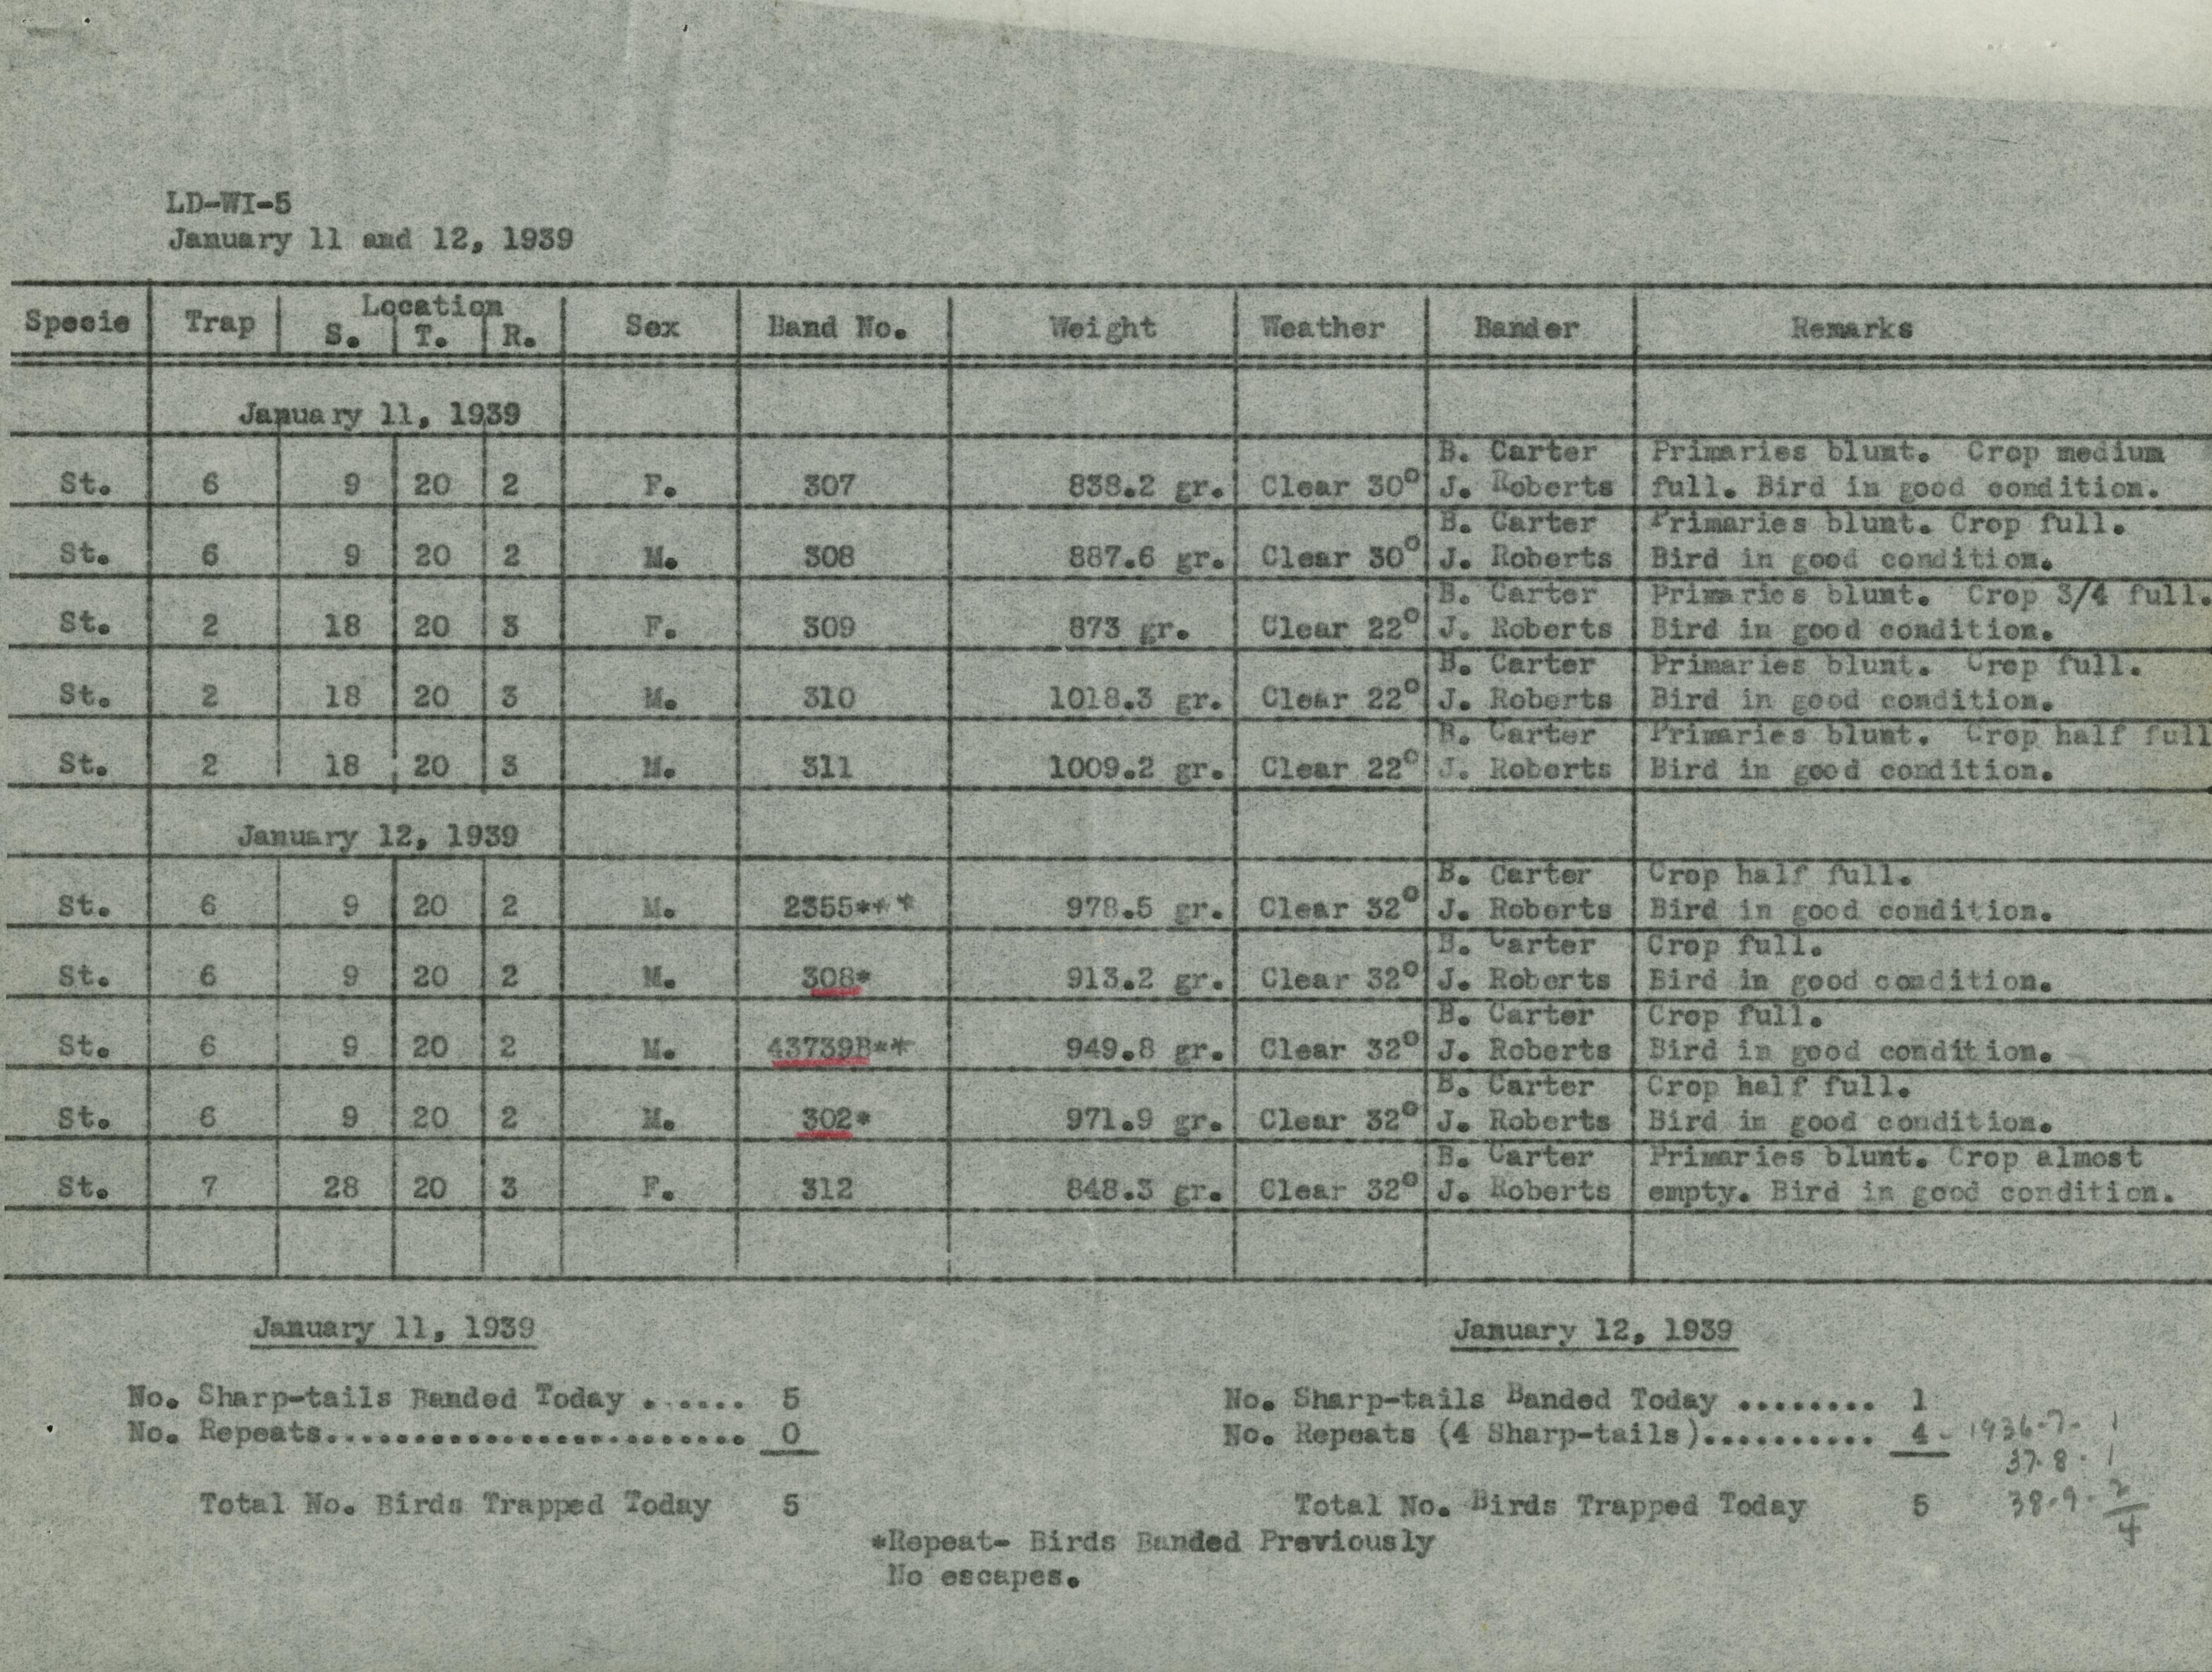 LD-WI-5
January 11 and 12, 1939
Specie Trap Location Sex Band No. Weight Weather Bander Remarks
S. T. R.
January 11, 1939
B. Carter Primaries blunt. Crop medium
St. 6 9 20 2 F. 307 838.2 gr. Clear 30° J. Roberts full. Bird in good condition.
B. Carter Primaries blunt. Crop full.
St. 6 9 20 2 M. 308 887.6 gr. Clear 30° J. Roberts Bird in good condition.
B. Carter Primaries blunt. Crop 3/4 full.
St. 2 18 20 3 F. 309 873 gr. Clear 22° J. Roberts Bird in good condition.
B. Carter Primaries blunt. Crop full.
St. 2 18 20 3 M. 310 1018.3 gr. Clear 22° J. Roberts Bird in good condition.
B. Carter Primaries blunt. Crop half full
St. 2 18 20 3 M. 311 1009.2 gr. Clear 22° J. Roberts Bird in good condition.
January 12, 1939
B. Carter Crop half full.
St. 6 9 20 2 M. 2355*** 978.5 gr. Clear 32° J. Roberts Bird in good condition.
B. Carter Crop full.
St. 6 9 20 2 M. 308* 913.2 gr. Clear 32° J. Roberts Bird in good condition.
B. Carter Crop full.
St. 6 9 20 2 M. 43739B** 949.8 gr. Clear 32° J. Roberts Bird in good condition.
B. Carter Crop half full.
St. 6 9 20 2 M. 302* 971.9 gr. Clear 32° J. Roberts Bird in good condition.
B. Carter Primaries blunt. Crop almost
St. 7 28 20 3 F. 312 848.3 gr. Clear 32° J. Roberts empty. Bird in good condition.
January 11, 1939 January 12, 1939
No. Sharp-tails Banded Today ...... 5 No. Sharp-tails Banded Today ........ 1
No. Repeats........................ 0 No. Repeats (4 Sharp-tails).......... 4 - 1936-7- 1
37-8- 1
Total No. Birds Trapped Today 5 Total No. Birds Trapped Today 5 38-9- 2
4
*Repeat- Birds Banded Previously
No escapes.